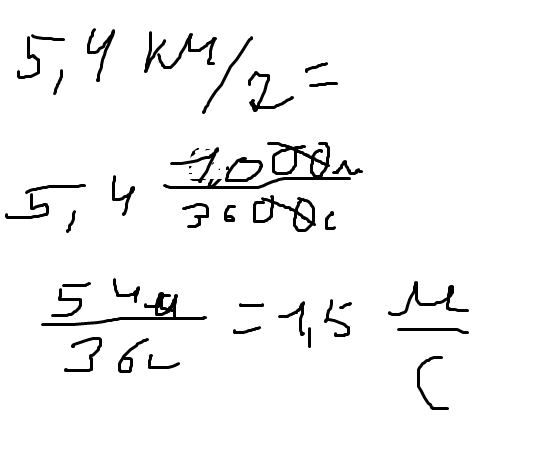 5,4 км/ч =
5,4 1000м/3600с
54м/36с = 1,5 м/с